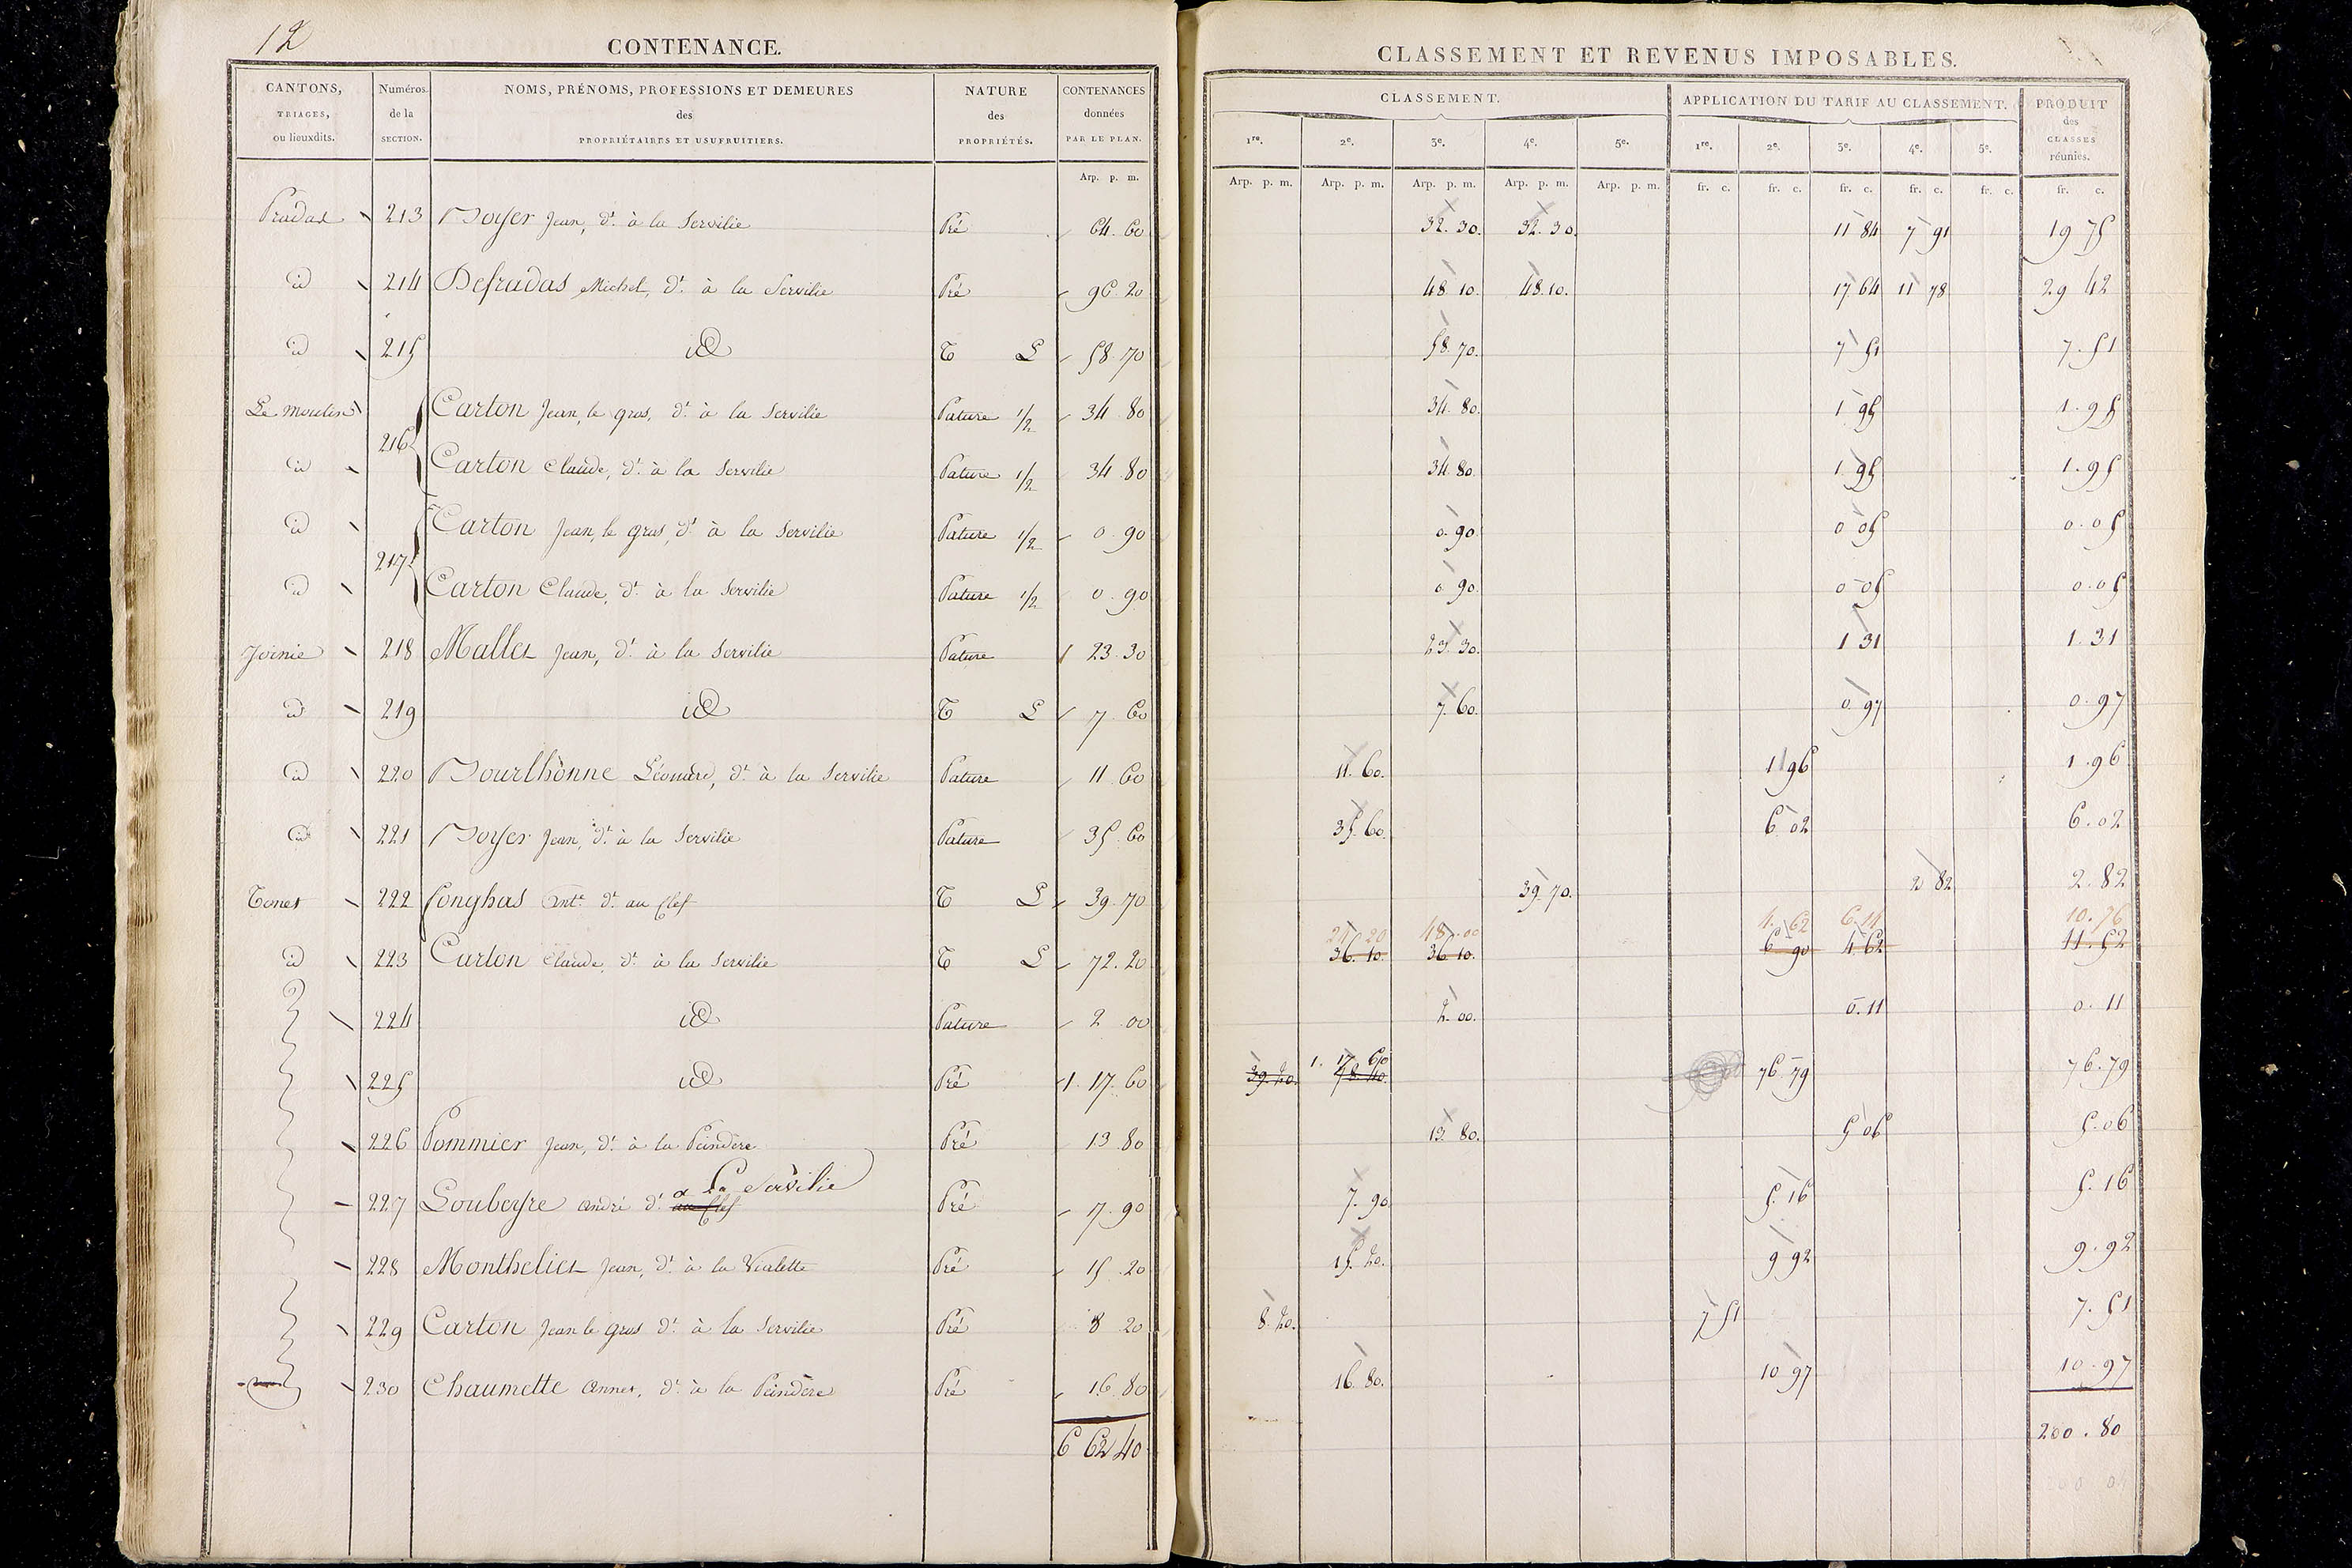 12
CONTENANCE.
CANTONS, TRIAGES, ou lieuxdits.
Numéros. de la SECTION.
NOMS, PRÉNOMS, PROFESSIONS ET DEMEURES des PROPRIÉTAIRES ET USUFRUITIERS.
NATURE des PROPRIÉTÉS.
CONTENANCES données PAR LE PLAN.
Arp. p. m.
Pradas 213 Boyer Jean, dt. à la Servilie Pré 64. 60
id 214 Defradas Michel, dt. à la Servilie Pré 96. 20
id 215 id T L 58. 70
Le moulin 216 Carton Jean, le gros, dt. à la Servilie Pature 1/2 34. 80
id Carton Claude, dt. à la Servilie Pature 1/2 34. 80
id 217 Carton Jean, le gros, dt. à la Servilie Pature 1/2 0. 90
id Carton Claude, dt. à la Servilie Pature 1/2 0. 90
218 Mallet Jean, dt. à la Servilie Pature 23. 30
id 219 id T L 7. 60
id 220 Bourlhonne Léonard, dt. à la Servilie Pature 11. 60
id 221 Boyer Jean, dt. à la Servilie Pature 35. 60
222 Antne. dt. au T L 39. 70
id 223 Carton Claude, dt. à la Servilie T L 72. 20
224 id Pature 2. 00
225 id Pré 1. 17. 60
226 Pommier Jean, dt. à la Peindère Pré 13. 80
227 Loubeyre André dt. à La Servilie Pré 7. 90
228 Monthelier Jean, dt. à la Vialette Pré 15. 20
229 Carton Jean le gros dt. à la Servilie Pré 8. 20
230 Chaumette Annet, dt. à la Peindère Pré 16. 80
6 62 40
CLASSEMENT ET REVENUS IMPOSABLES.
CLASSEMENT.
APPLICATION DU TARIF AU CLASSEMENT.
PRODUIT des CLASSES réunies.
1re. 2e. 3e. 4e. 5e. 1re. 2e. 3e. 4e. 5e.
Arp. p. m. Arp. p. m. Arp. p. m. Arp. p. m. Arp. p. m. fr. c. fr. c. fr. c. fr. c. fr. c. fr. c.
32. 30. 32. 30. 11 84 7 91 19 75
48. 10. 48. 10. 17 64 11 78 29 42
58. 70. 7 51 7. 51
34. 80. 1 95 1. 95
34. 80. 1 95 1. 95
0. 90. 0 05 0. 05
0. 90. 0 05 0. 05
23. 30. 1 31 1. 31
7. 60. 0. 97 0. 97
11. 60. 1 96 1. 96
35. 60. 6 02 6. 02
39. 70. 2 82 2. 82
24. 20 48. 00 4. 62 6. 14 10. 76
36. 10. 36. 10. 6 90 4 62 11. 52
2. 00. 0. 11 0. 11
1. 17 60
39. 20. 78. 40. 76 79 76. 79
13. 80. 5 06 5. 06
7. 90 5. 16 5. 16
15. 20. 9 92 9. 92
8. 20. 7 51 7. 51
16. 80. 10 97 10. 97
200. 80